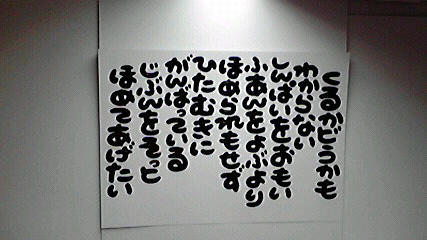 くるかどうかも
わからない
しんぱいをおもい
ふあんをよぶより
ほめられもせず
ひたむきに
がんばっている
じぶんをそっと
ほめてあげたい